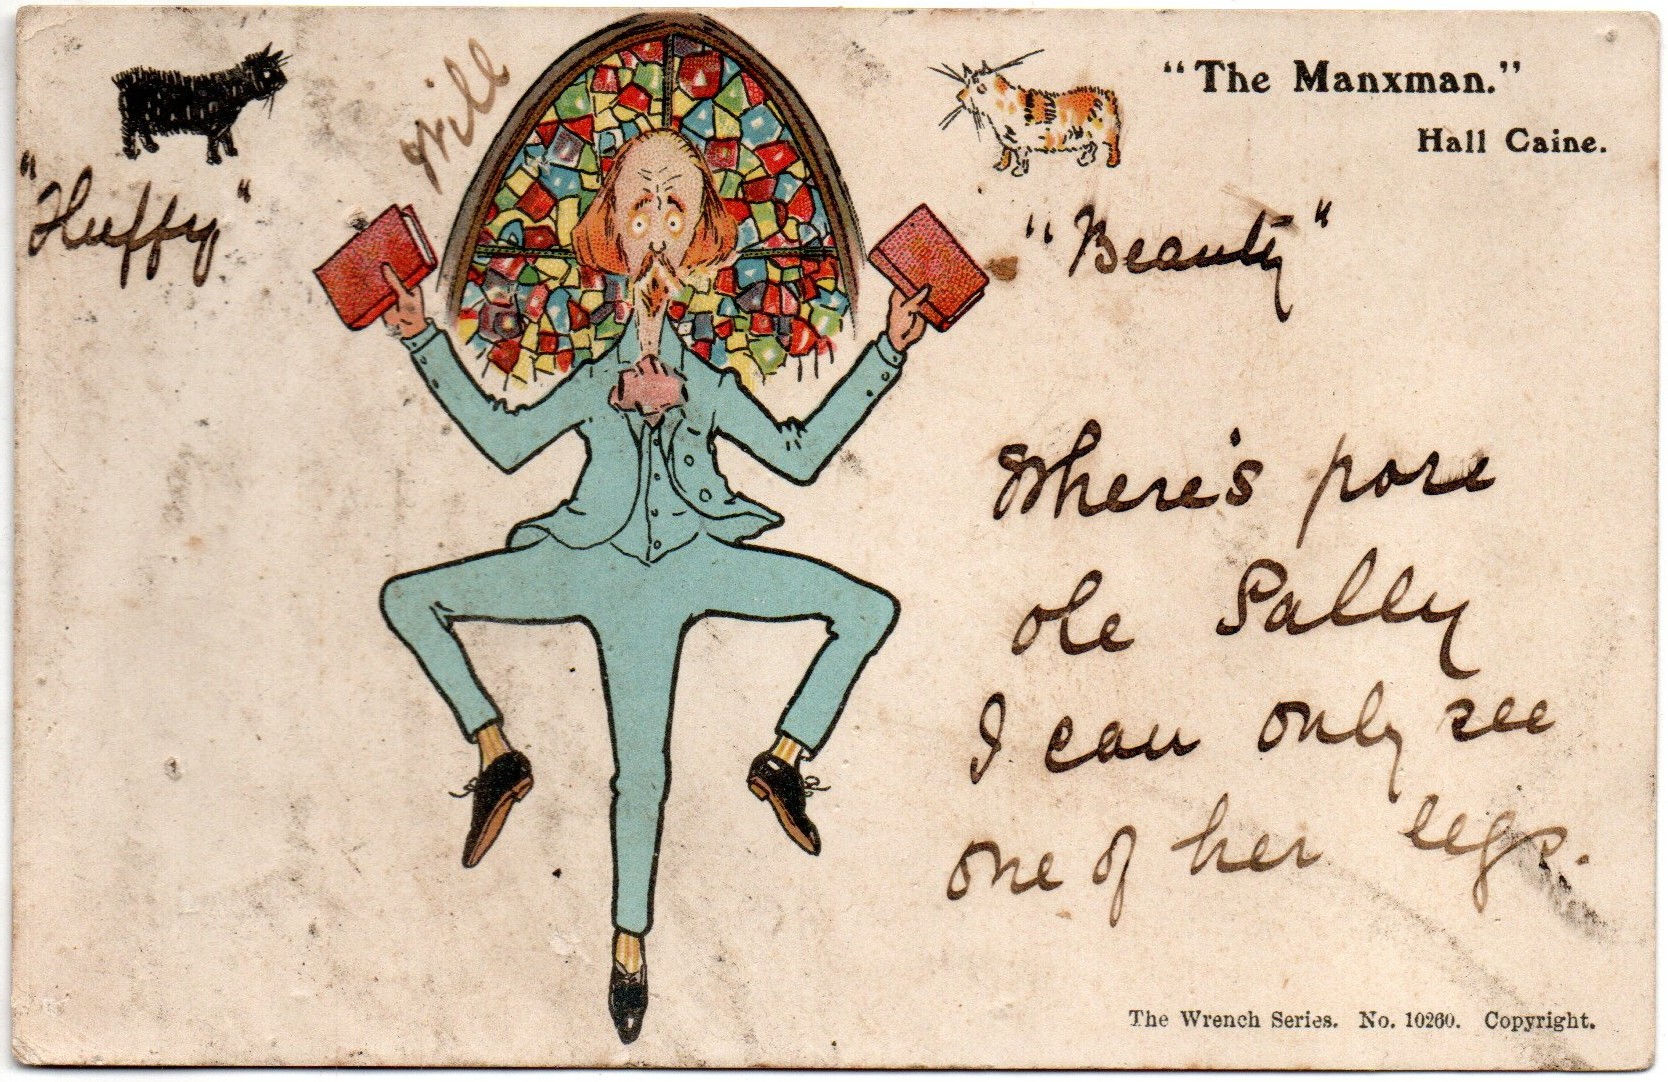 Will
"The Manxman."
Hall Caine.
"Huffy"
"Beauty"
Where's pore
ole Sally
I can only see
one of her legs.
The Wrench Series. No. 10260. Copyright.